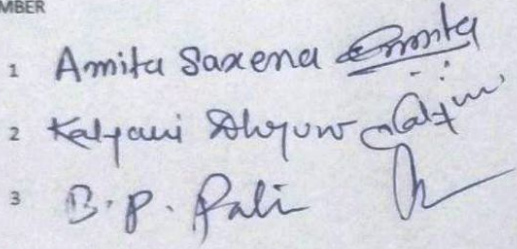 MBER
1 Amita Saxena Amita
2 Kalyani
3 B. P. Pali